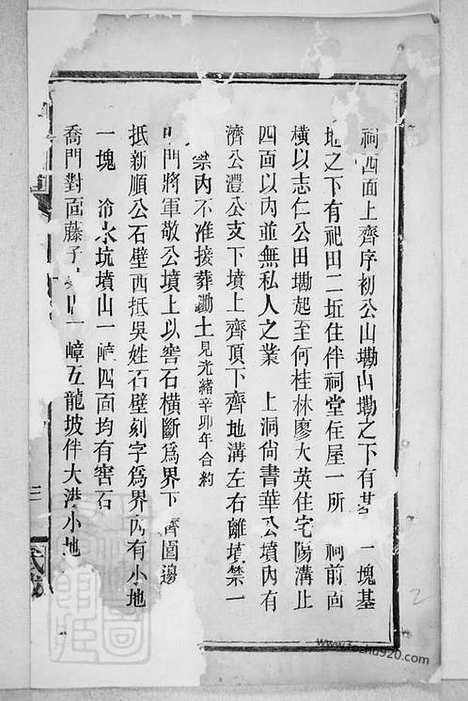 祠西面上齊序初公山墈山墈之下有基一塊基
地之下有祀田二坵住伴祠堂住屋一所 祠前面
橫以志仁公田墈起至何桂林廖大英住宅陽溝止
四面以內並無私人之業 上洞尙書華公墳內有
濟公澧公支下墳上齊頂下齊地溝左右離墳禁一
禁內不准接葬動土見光緒辛卯年合約
門將軍敬公墳上以窖石橫斷爲界下齊圍邊
抵新順公石壁西抵吳姓石壁刻字爲界內有小地
一塊 冷水坑墳山一嶂四面均有窖石
喬門對面藤子 山一嶂五龍坡伴大港小地
三
2
www.fozhu920.com